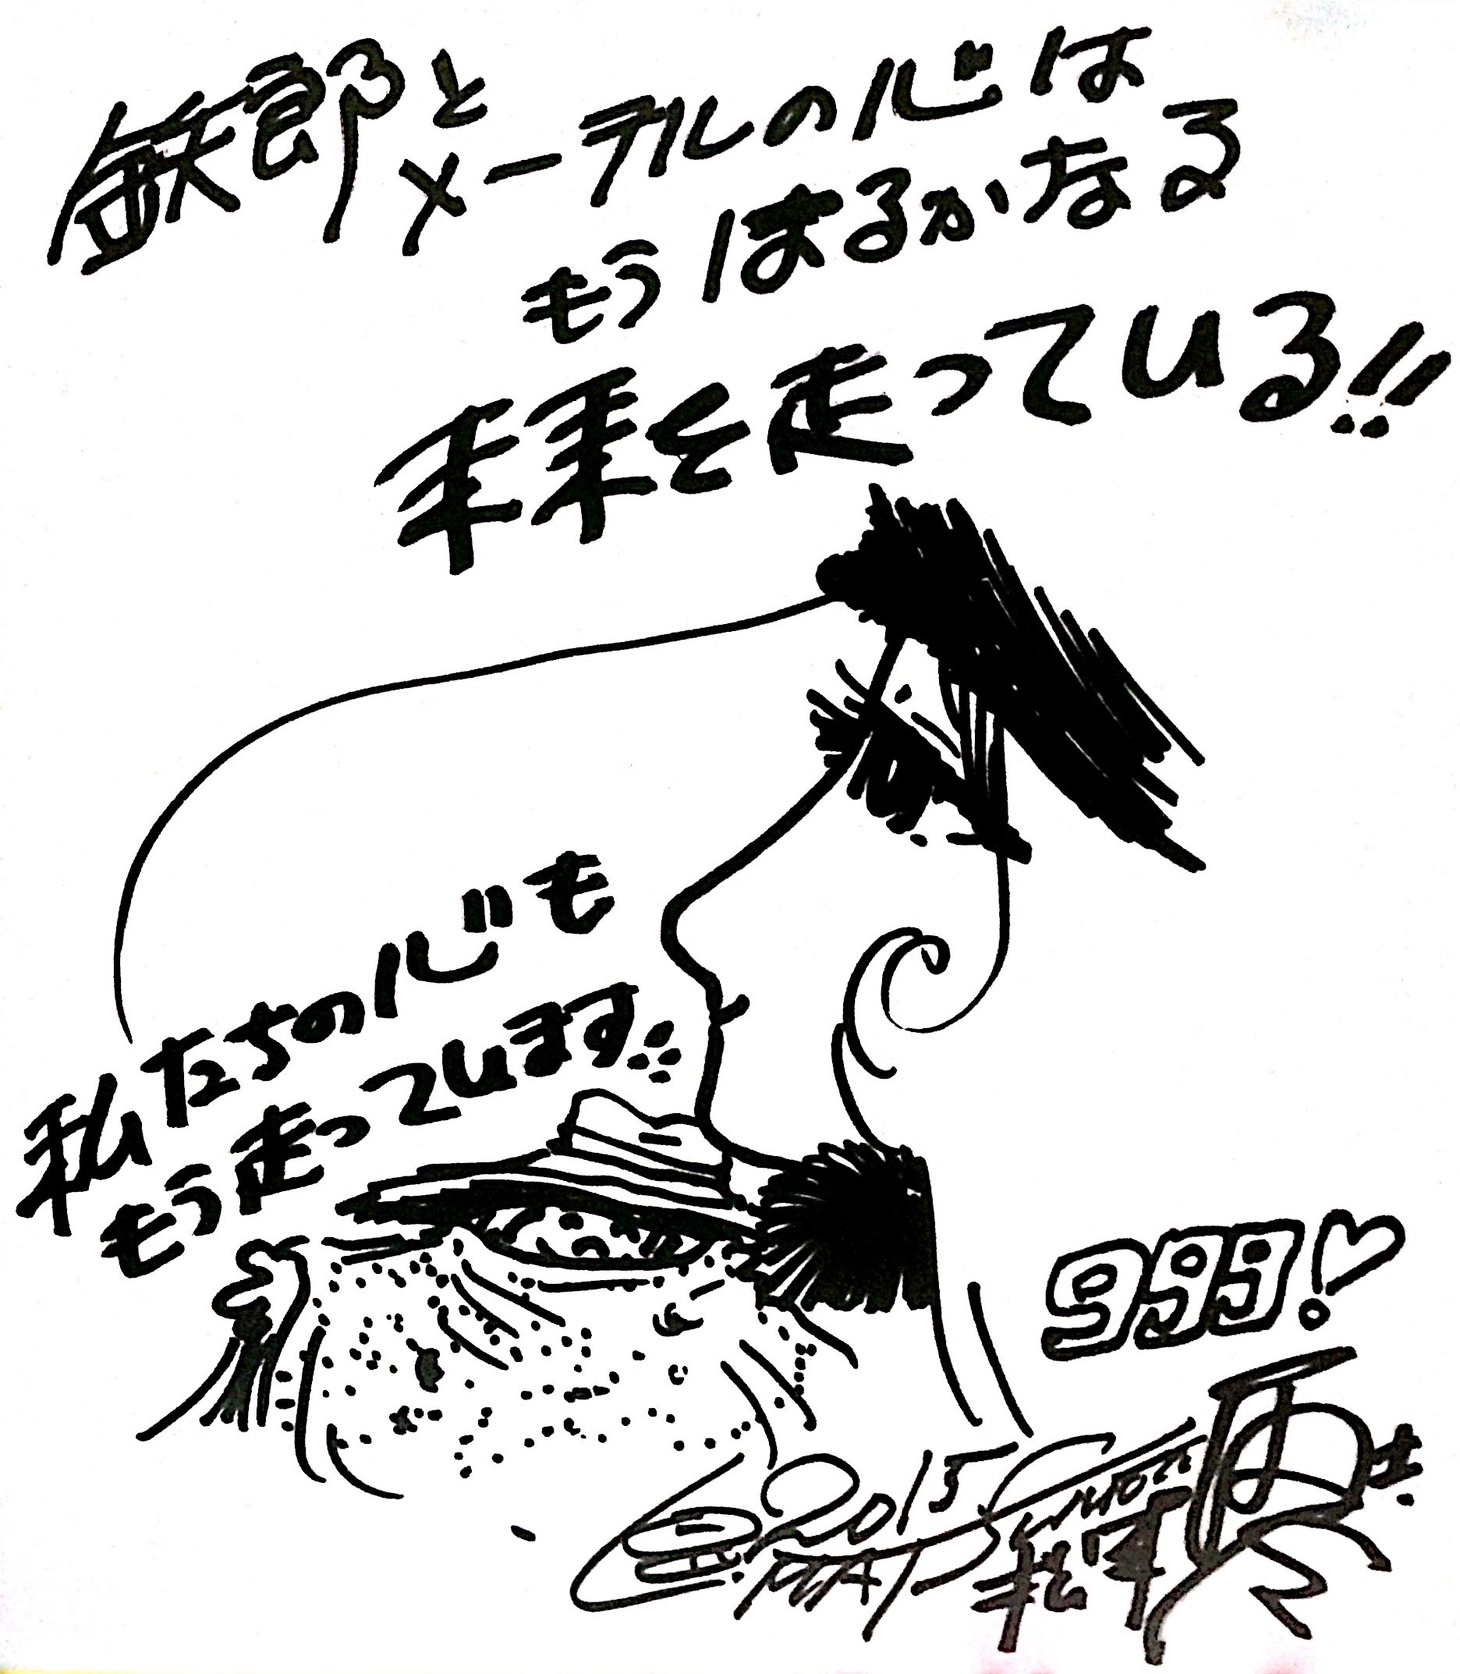 鉄郎と
メーテルの心は
もうはるかなる
未来を走っている!!
私たちの心も
もう走っています
999!♡
2015
松本零士